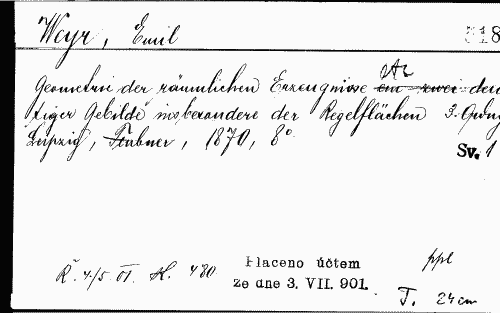 Weyr, Emil 518
Geometrie der räumlichen Erzeugnisse ein-zwei deu
tiger Gebilde insbesondere der Regelflächen 3. Ordng
Leipzig, Teubner, 1870, 8°
Sv. 1
Placeno účtem ppl
ze dne 3. VII. 901.
Ř. 4/5 01. H. 480
T. 24 cm